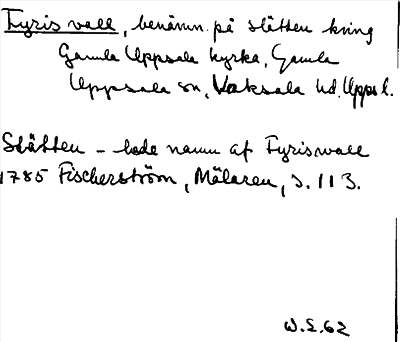 Fyris vall, benämn. på slätten kring
Gamla Uppsala kyrka, Gamla
Uppsala sn, Vaksala hd, Upps l.
Slätten – bode namn af Fyriswall
1785 Fischerström, Mälaren, s. 113.
W.S.62